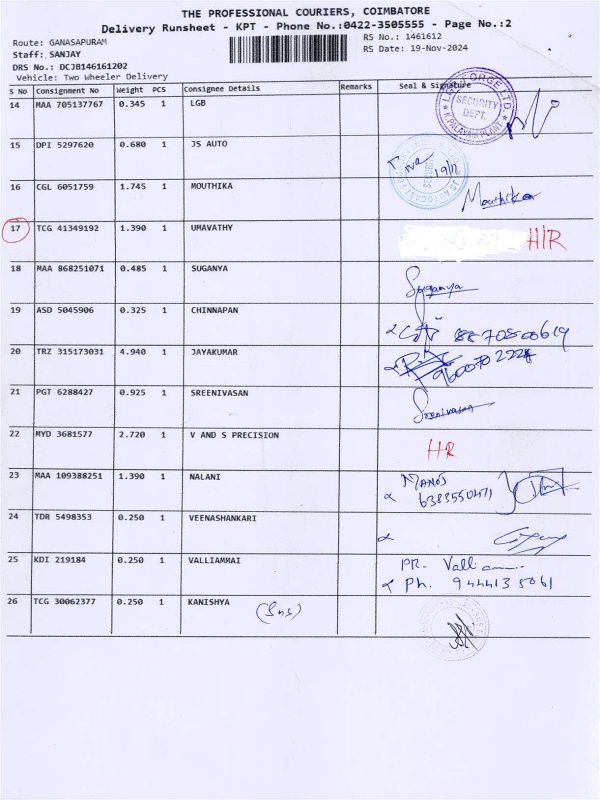 THE PROFESSIONAL COURIERS, COIMBATORE
Delivery Runsheet - KPT - Phone No.:0422-3505555 - Page No.:2
Route: GANASAPURAM
RS No.: 1461612
Staff: SANJAY
RS Date: 19-Nov-2024
DRS No.: DCJB146161202
Vehicle: Two Wheeler Delivery
S No Consignment No Weight PCS Consignee Details Remarks Seal & Signature
14 MAA 705137767 0.345 1 LGB
SECURITY DEPT.
15 DPI 5297620 0.680 1 JS AUTO
19/11
16 CGL 6051759 1.745 1 MOUTHIKA Mouthika
17 TCG 41349192 1.390 1 UMAVATHY H/R
18 MAA 868251071 0.485 1 SUGANYA Suganya
19 ASD 5045906 0.325 1 CHINNAPAN
20 TRZ 315173031 4.940 1 JAYAKUMAR
21 PGT 6288427 0.925 1 SREENIVASAN Sreenivasan
22 MYD 3681577 2.720 1 V AND S PRECISION HR
23 MAA 109388251 1.390 1 NALANI
24 TDR 5498353 0.250 1 VEENASHANKARI
25 KDI 219184 0.250 1 VALLIAMMAI PR. Valliammai
Ph. 944413 5061
26 TCG 30062377 0.250 1 KANISHYA (Sns)